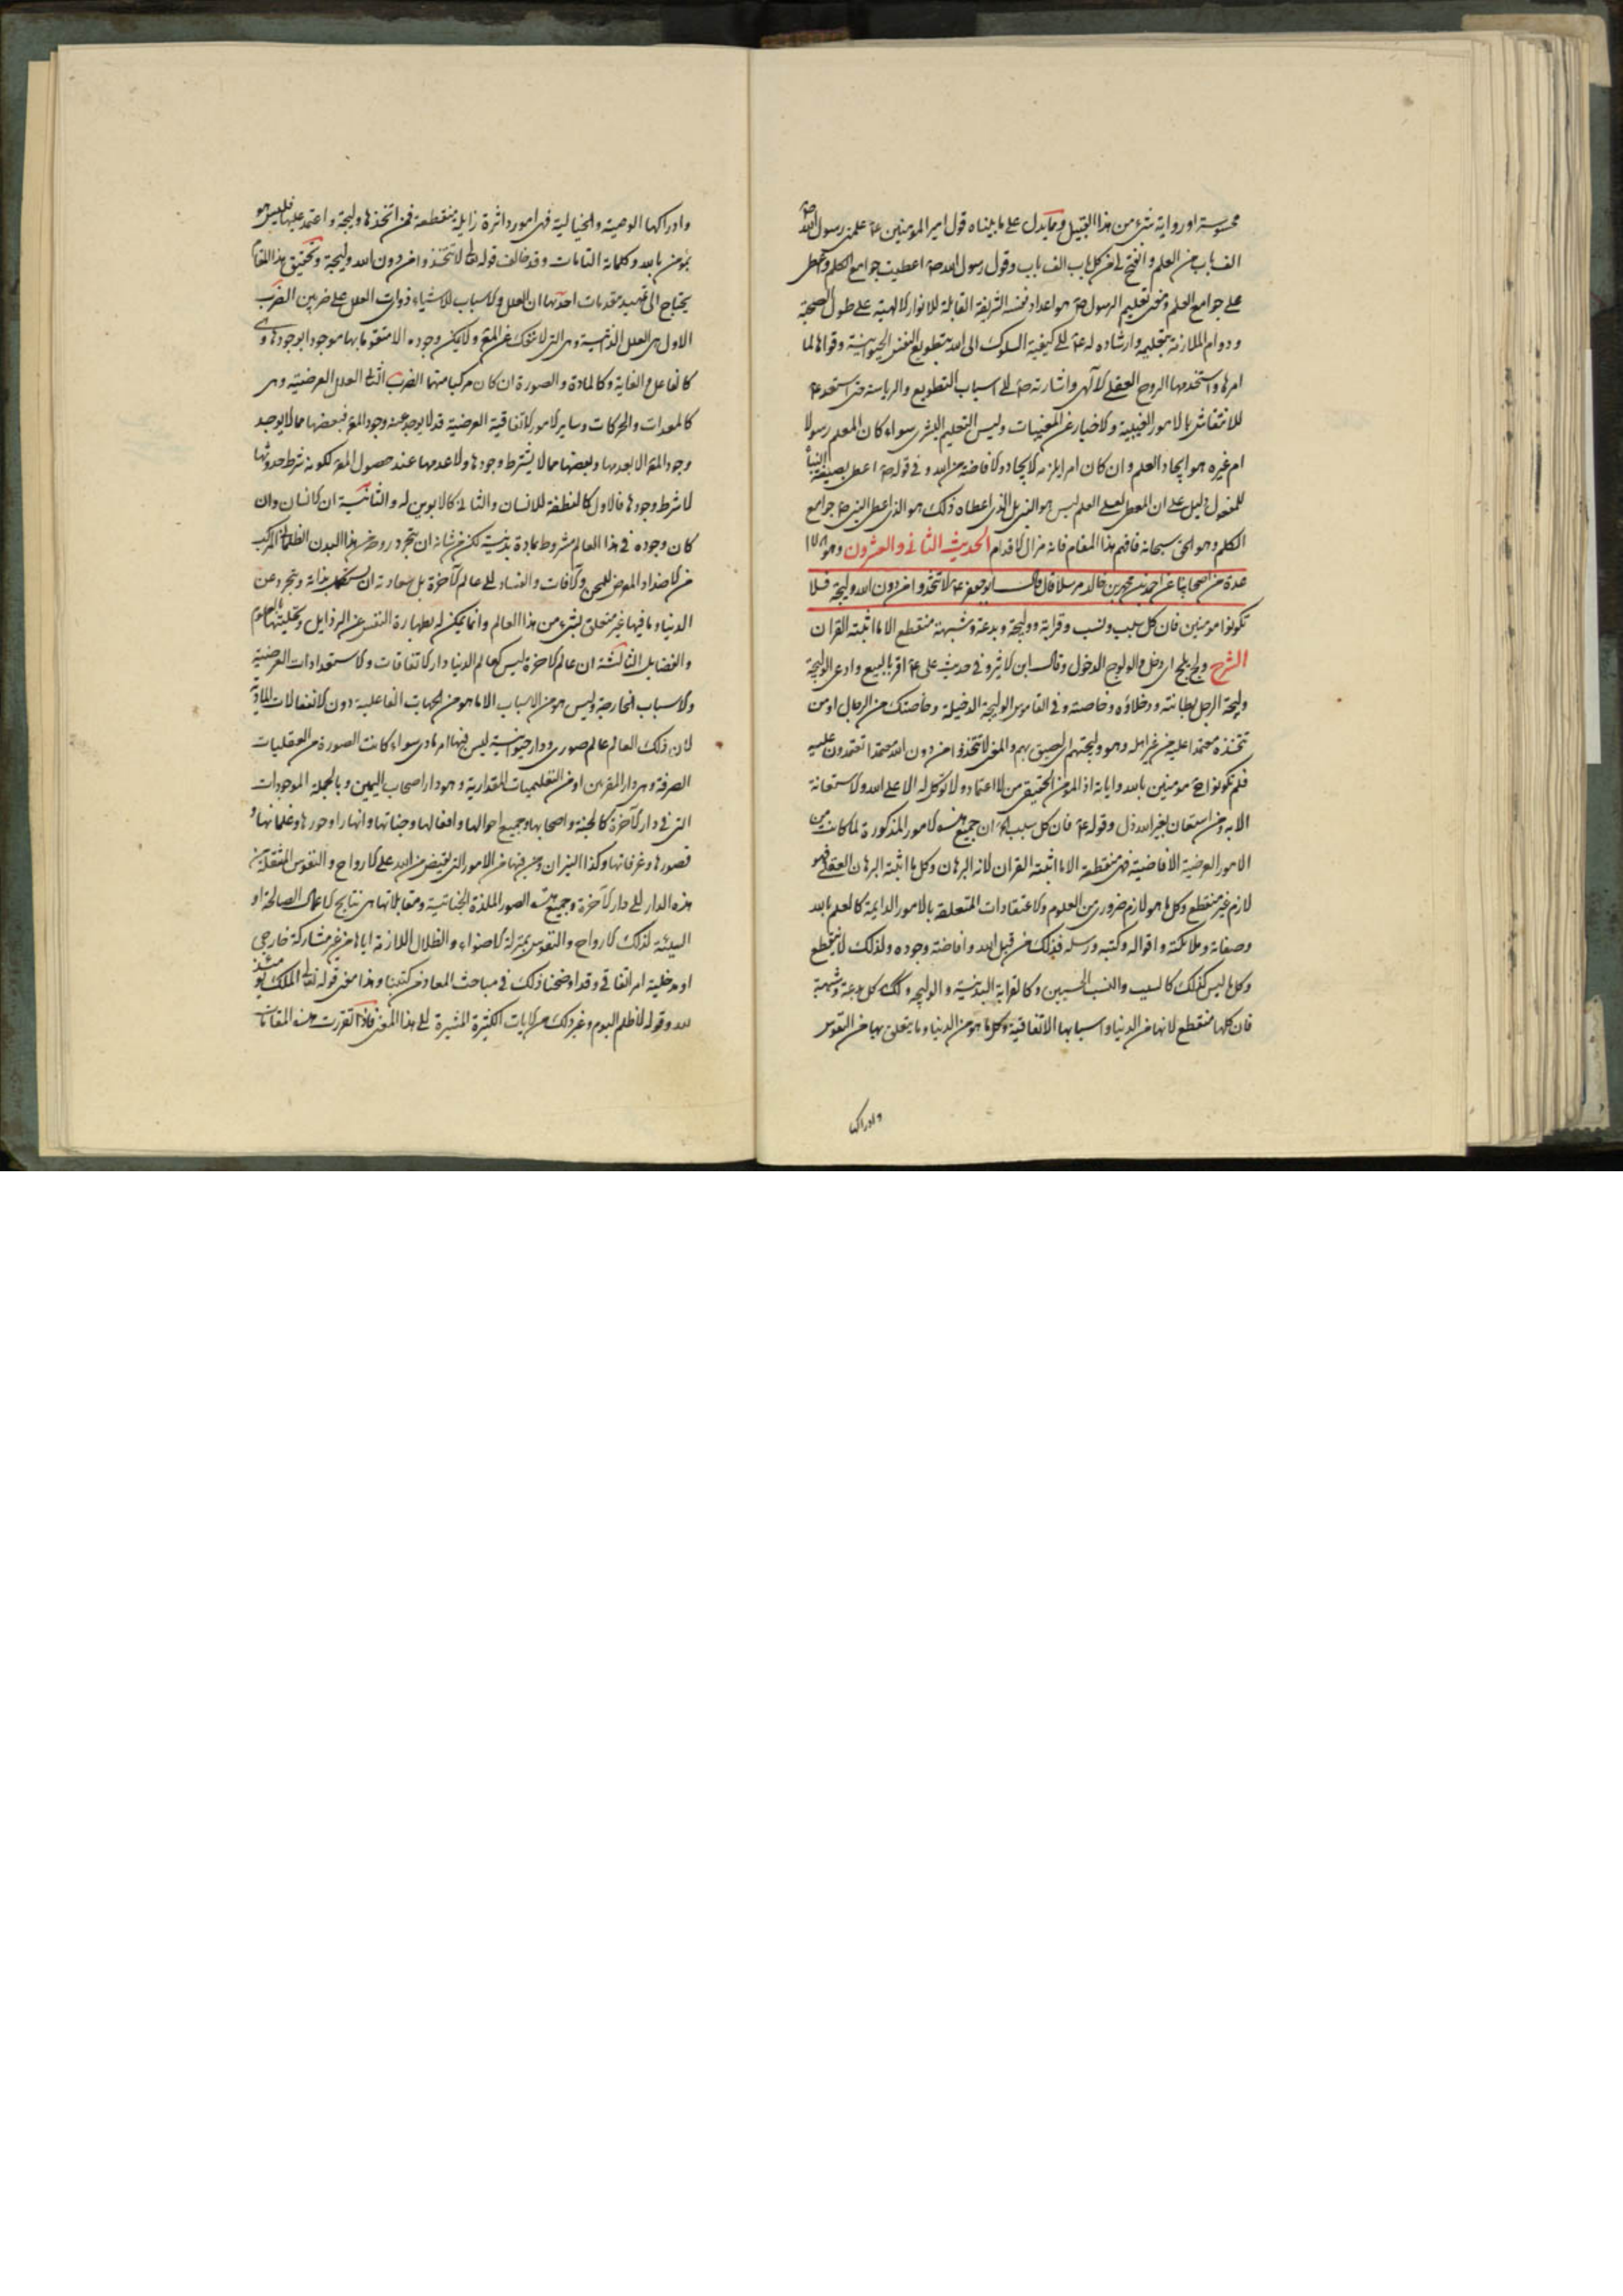 محسوسة او رواية شيء من هذا القبيل ومما يدل على ما بيناه قول امير المؤمنين ع علمنى رسول الله ص
الف باب من العلم وانفتح لى من كل باب الف باب وقول رسول الله ص اعطيت جوامع الكلم واعطى
على جوامع العلم ومعنى تعليم الرسول ص هو اعداد نفسه الشريفة القابلة للانوار الالهية على طول الصحبة
ودوام الملازمة بتعليمه وارشاده له ع الى كيفية السلوك الى الله بتطويع النفس الحيوانية وقواها لما
امرها واستخدمها الروح العقلى الالهى واشارته ص الى اسباب التطويع والرياسة حتى استعد ع
للانتقاش بالامور الغيبية والاخبار عن المغيبات وليس التعليم البشرى سواء كان المعلم رسولا
ام غيره هو ايجاد العلم وان كان امرا يلزمه الايجاد والافاضة من الله وفى قوله ص اعطى بصيغة البناء
للمفعول دليل على ان المعطى لعلى العلم ليس هو النبى بل الذى اعطاه ذلك هو الذى اعطى النبى ص جوامع
الكلم وهو الحق سبحانه فافهم هذا المقام فانه مزال الاقدام الحديث الثانى والعشرون وهو
عدة من اصحابنا عن احمد بن محمد بن خالد مرسلا قال قال ابو جعفر ع لا تتخذوا من دون الله وليجة فلا
تكونوا مؤمنين فان كل سبب ونسب وقرابة ووليجة وبدعة وشبهة منقطع الا ما اثبته القران
الشرح ولج يلج اى دخل والولوج الدخول وقال ابن الاثير وفى حديث على ع اقر بالبيع وادعى الوليجة
وليجة الرجل بطانته ودخلاؤه وخاصته وفى القاموس الوليجة الدخيلة وخاصتك من الرجال او من
تتخذه معتمدا عليه من غير اهلك وهو وليجتهم اى لصيق بهم والمعنى لا تتخذوا من دون الله معتمدا تعتمدون عليه
فلم تكونوا ح مؤمنين بالله واياته اذ المؤمن الحقيقى من لا اعتماد ولا توكل له الا على الله ولا استعانة
الا به ومن استعان بغير الله ذل وقوله ع فان كل سبب الخ ان جميع هذه الامور المذكورة لما كانت من
الامور العرضية الافاضية فهى منقطعة الا ما اثبته القران لانه البرهان وكل ما اثبته البرهان العقلى فهو
لازم غير منقطع وكل ما هو لازم ضرورى من العلوم والاعتقادات المتعلقة بالامور الدايمة كالعلم بالله
وصفاته وملائكته واقواله وكتبه ورسله فذلك من قبل الله وافاضته وجوده ولذلك لا ينقطع
وكل ما ليس كذلك كالسبب والنسب الحسيين وكالقرابة البدنية والوليجة وكذلك كل بدعة وشبهة
فان كلها منقطع لانها من الدنيا واسبابها الاتفاقية وكل ما هو من الدنيا وما يتعلق بها من النفوس
وادراكها
وادراكها الوهمية والخيالية فهى امور داثرة زايلة منقطعة فمن اتخذها وليجة واعتمد عليها فليس هو
بمؤمن بالله وكلماته التامات وقد خالف قوله تعالى لا تتخذوا من دون الله وليجة وتحقيق هذا المقام
يحتاج الى تمهيد مقدمات احدها ان العلل والاسباب للاشياء ذوات العلل على ضربين الضرب
الاول هى العلل الذاتية وهى التى لا تنفك عن المع ولا يمكن وجوده الا متقوما بها موجودا بوجودها وهى
كالفاعل والغاية وكالمادة والصورة ان كان مركبا منهما الضرب الثانى العلل العرضية وهى
كالمعدات والحركات وساير الامور الاتفاقية العرضية قد لا يوجد عند وجود المع فبعضها مما لا يوجد
وجود المع الا بعدمها وبعضها مما لا يشترط وجودها ولا عدمها عند حصول المع لكونه شرط حدوثها
لا شرط وجودها فالاول كالنطفة للانسان والثانى كالابوين له والثانية ان الانسان وان
كان وجوده فى هذا العالم مشروط بمادة بدنية لكن من شانه ان يتجرد روحه من هذا البدن الظلمانى المركب
من الاضداد المعرض للمحن والافات والفساد الى عالم الاخرة بل سعادته ان يستكمل بذاته ويتجرد عن
الدنيا وما فيها غير متعلق بشيء من هذا العالم وانما يمكن له بطهارة النفس عن الرذايل وتحليتها بالعلوم
والفضايل الثالثة ان عالم الاخرة ليس كعالم الدنيا دار الاتفاقات والاستعدادات العرضية
والاسباب الخارجية وليس هو من الاسباب الا ما هو من الجهات الفاعلية دون الانفعالات المادية
لان ذلك العالم عالم صورى ودار حيوانية ليس فيها امر مادى سواء كانت الصورة من العقليات
الصرفة وهى دار المقربين او من التعليميات المقدارية وهو دار اصحاب اليمين وبالجملة الموجودات
التى فى دار الاخرة كالجنة واصحابها وجميع احوالها وافعالها وجناتها وانهارها وحورها وغلمانها و
قصورها وغرفاتها وكذا النيران ومن فيها من الامور التى يفيض من الله على الارواح والنفوس المنتقلة من
هذه الدار الى دار الاخرة وجميع هذه الصور الملذة الجنانية ومقابلاتها هى نتايج الاعمال الصالحة او
السيئة لذلك الارواح والنفوس بمنزلة الاضواء والظلال اللازمة اياها من غير مشاركة خارجى
او مدخلية امر اتفاقى وقد اوضحنا ذلك فى مباحث المعاد من كتبنا وهذا معنى قوله تعالى الملك يومئذ
لله وقوله لا ظلم اليوم وغير ذلك من الايات الكثيرة المشيرة الى هذا المعنى فاذا تقررت هذه المقدمات